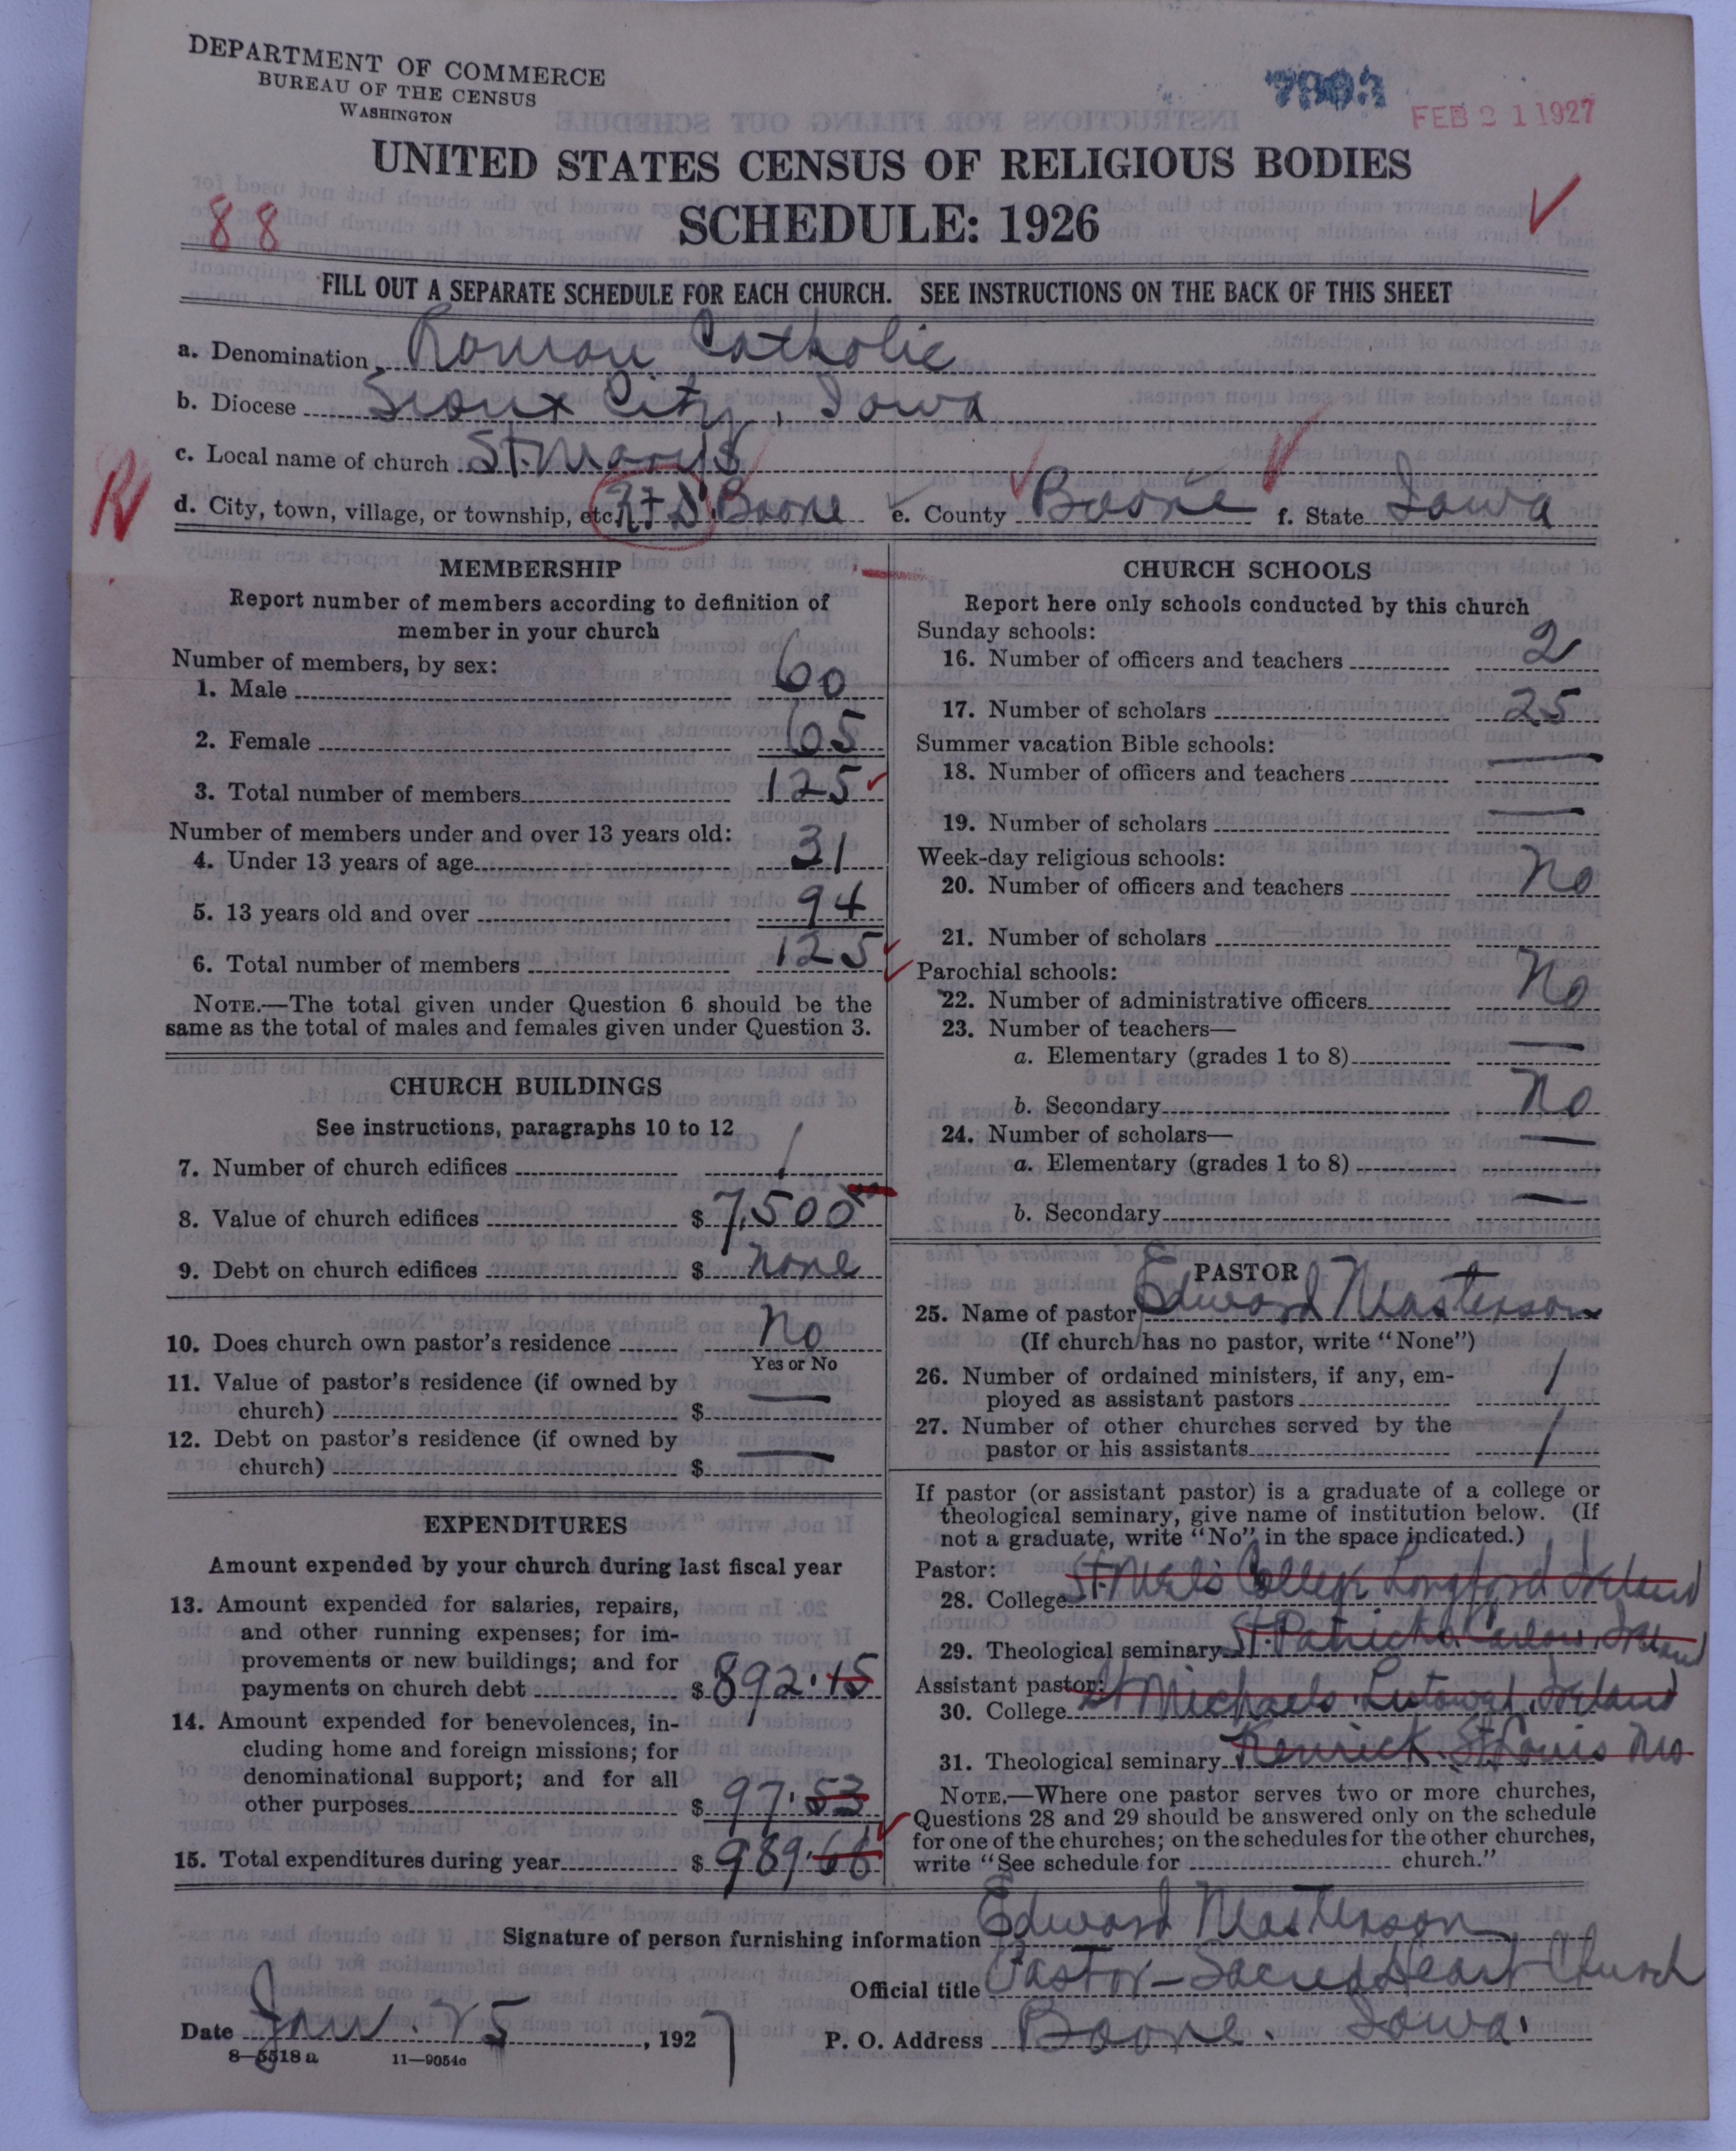 DEPARTMENT OF COMMERCE
BUREAU OF THE CENSUS
WASHINGTON
FEB 21 1927
UNITED STATES CENSUS OF RELIGIOUS BODIES
88
SCHEDULE: 1926
FILL OUT A SEPARATE SCHEDULE FOR EACH CHURCH. SEE INSTRUCTIONS ON THE BACK OF THIS SHEET
a. Denomination Roman Catholic
b. Diocese Sioux City, Iowa
c. Local name of church St. Mary's
R
d. City, town, village, or township, etc. RFD Boone e. County Boone f. State Iowa
MEMBERSHIP
Report number of members according to definition of
member in your church
Number of members, by sex:
1. Male 60
2. Female 65
3. Total number of members 125
Number of members under and over 13 years old:
4. Under 13 years of age 31
5. 13 years old and over 94
6. Total number of members 125
NOTE.—The total given under Question 6 should be the
same as the total of males and females given under Question 3.
CHURCH BUILDINGS
See instructions, paragraphs 10 to 12
7. Number of church edifices 1
8. Value of church edifices $ 7,500
9. Debt on church edifices $ none
10. Does church own pastor's residence No
Yes or No
11. Value of pastor's residence (if owned by
church) $ —
12. Debt on pastor's residence (if owned by
church) $ —
EXPENDITURES
Amount expended by your church during last fiscal year
13. Amount expended for salaries, repairs,
and other running expenses; for im-
provements or new buildings; and for
payments on church debt $ 892.15
14. Amount expended for benevolences, in-
cluding home and foreign missions; for
denominational support; and for all
other purposes $ 97.53
15. Total expenditures during year $ 989.68
CHURCH SCHOOLS
Report here only schools conducted by this church
Sunday schools:
16. Number of officers and teachers 2
17. Number of scholars 25
Summer vacation Bible schools:
18. Number of officers and teachers —
19. Number of scholars —
Week-day religious schools:
20. Number of officers and teachers No
21. Number of scholars
Parochial schools:
22. Number of administrative officers No
23. Number of teachers—
a. Elementary (grades 1 to 8) —
b. Secondary No
24. Number of scholars—
a. Elementary (grades 1 to 8) —
b. Secondary —
PASTOR
25. Name of pastor Edward Masterson
(If church has no pastor, write "None")
26. Number of ordained ministers, if any, em-
ployed as assistant pastors 1
27. Number of other churches served by the
pastor or his assistants 1
If pastor (or assistant pastor) is a graduate of a college or
theological seminary, give name of institution below. (If
not a graduate, write "No" in the space indicated.)
Pastor:
28. College St. Mel's College Longford Ireland
29. Theological seminary St. Patricks Carlow, Ireland
Assistant pastor:
30. College St Michaels Listowel, Ireland
31. Theological seminary Kenrick St Louis Mo
NOTE.—Where one pastor serves two or more churches,
Questions 28 and 29 should be answered only on the schedule
for one of the churches; on the schedules for the other churches,
write "See schedule for church."
Signature of person furnishing information Edward Masterson
Official title Pastor – Sacred Heart Church
Date Jan. 25, 1927 P. O. Address Boone. Iowa.
8—5518 a 11—9054a